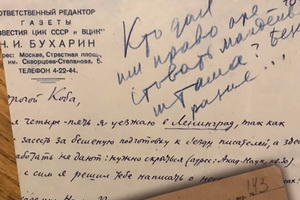 ОТВЕТСТВЕННЫЙ РЕДАКТОР
ГАЗЕТЫ
ИЗВЕСТИЯ ЦИК СССР и ВЦИК"
Н. И. БУХАРИН
Москва, Страстная площ.
им. Скворцова-Степанова, 5.
ТЕЛЕФОН 4-22-44.
Кто дал
им право аре
стовать
Коба,
четыре-пять я уезжаю в Ленинград, так как
засесть за бешеную подготовку к съезду писателей, а здесь
работать не дают: нужно скрыться (адрес: Акад. Наук,
с сим я решил тебе написать о
143